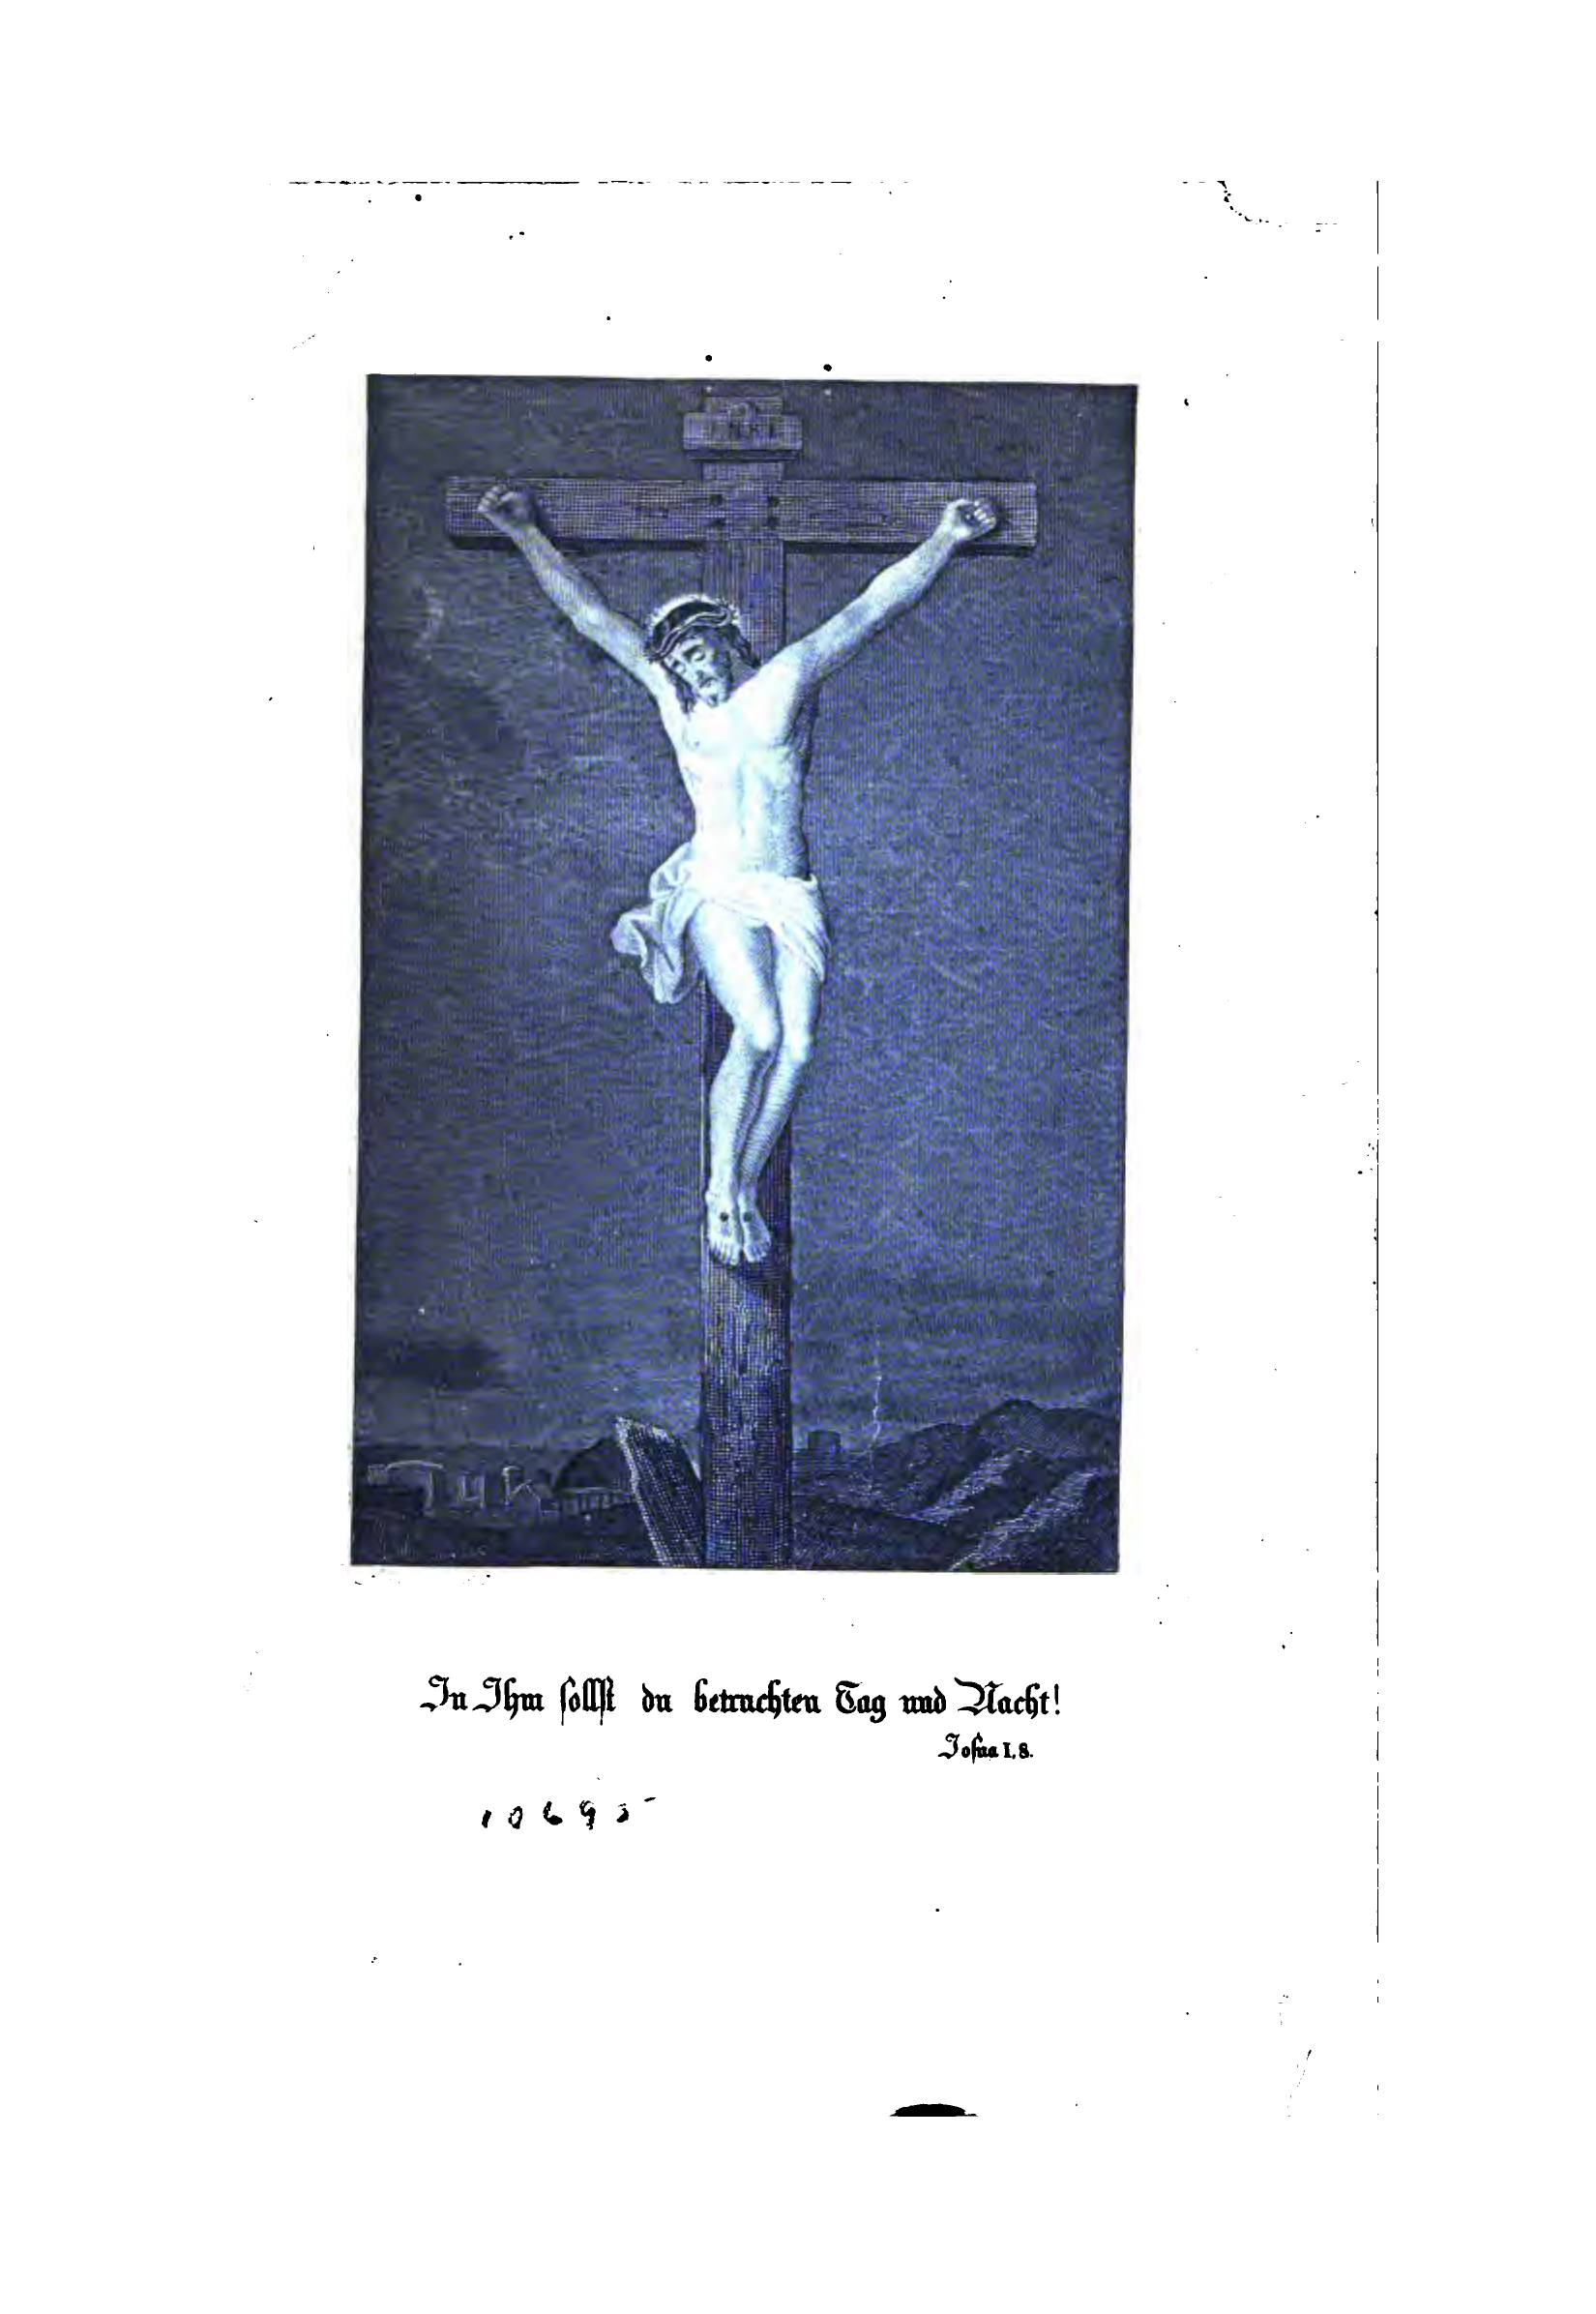 In Ihm sollst du betrachten Tag und Nacht!
Josua I, 8.
10695